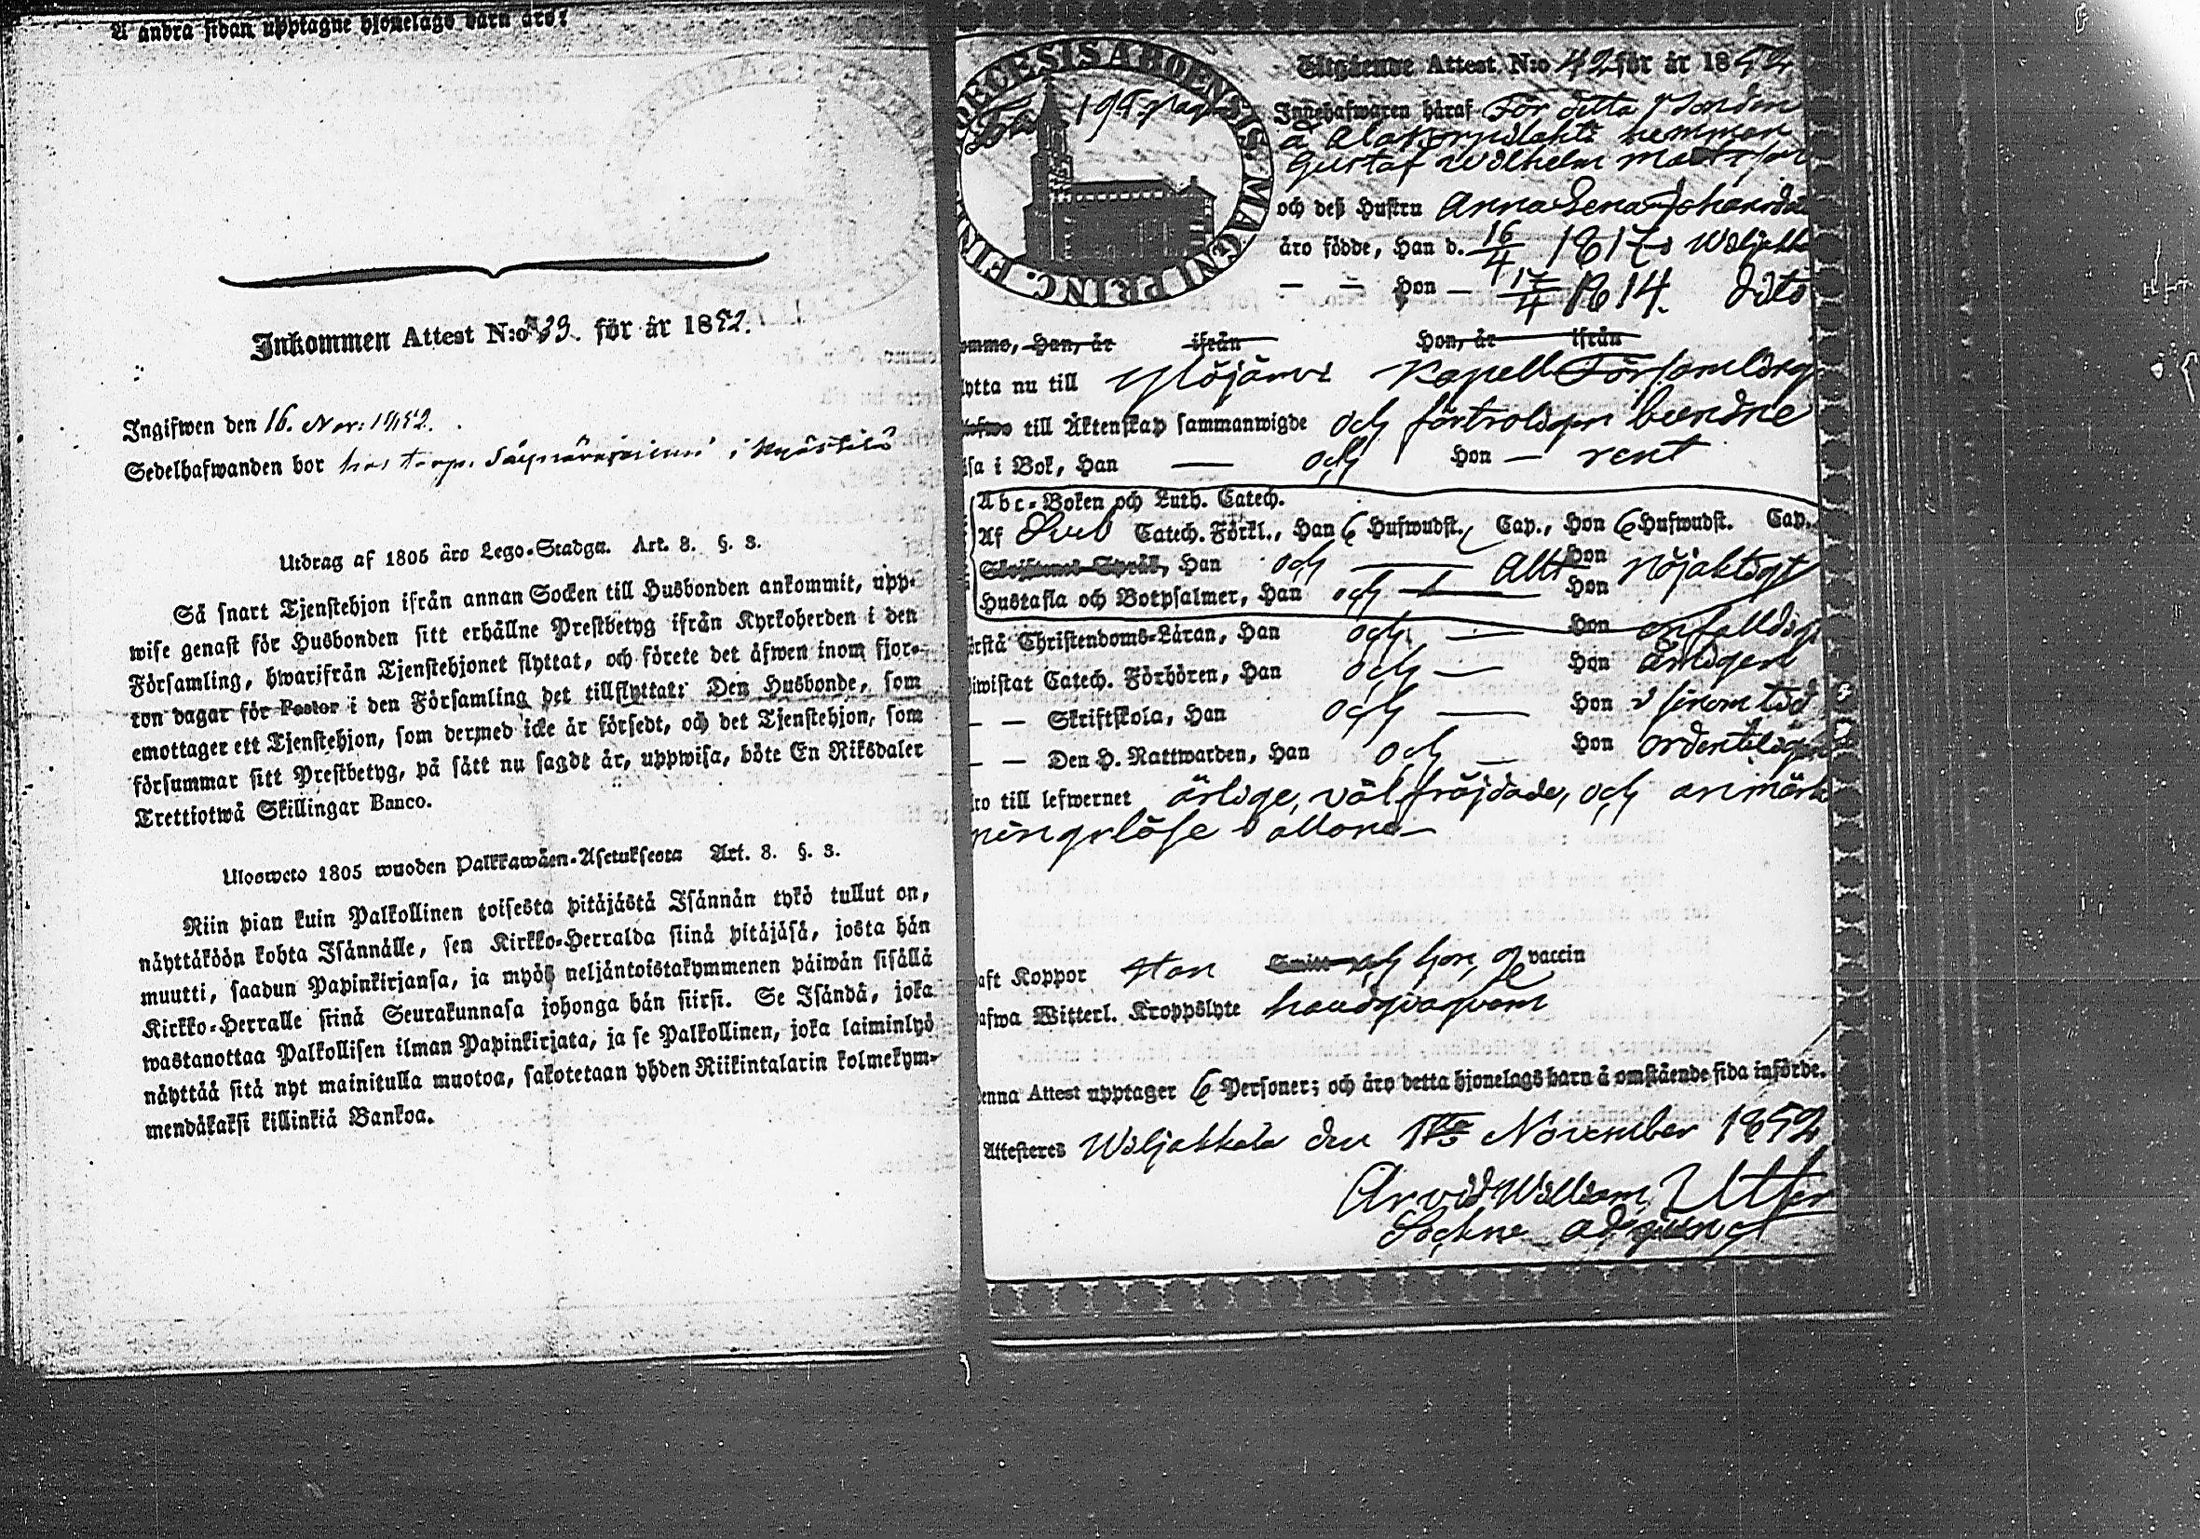 A andra sidan upptagne hjonelags barn äro:
Inkommen Attest N:o 39. för år 1852.
Ingifwen den 16. Nov: 1852.
Sedelhafwanden bor hos torp. i
Utdrag af 1805 års Lego-Stadga. Art. 8. §. 3.
Så snart Tjenstehjon ifrån annan Socken till Husbonden ankommit, upp-
wise genast för Husbonden sitt erhållne Prestbetyg ifrån Kyrkoherden i den
Församling, hwarifrån Tjenstehjonet flyttat, och förete det äfwen inom fjor-
ton dagar för Pastor i den Församling det tillflyttat: Den Husbonde, som
emottager ett Tjenstehjon, som dermed icke är försedt, och det Tjenstehjon, som
försummar sitt Prestbetyg, på sätt nu sagdt är, uppwisa, böte En Riksdaler
Trettiotwå Skillingar Banco.
Ulosweto 1805 wuoden Palkkawäen-Asetuksesta Art. 8. §. 3.
Niin pian kuin Palkollinen toisesta pitäjästä Isännän tykö tullut on,
näyttäköön kohta Isännälle, sen Kirkko-Herralda siinä pitäjäsä, josta hän
muutti, saadun Papinkirjansa, ja myös neljäntoistakymmenen päiwän sisällä
Kirkko-Herralle siinä Seurakunnasa johonga hän siirsi. Se Isändä, joka
wastanottaa Palkollisen ilman Papinkirjata, ja se Palkollinen, joka laiminlyö
näyttää sitä nyt mainitulla muotoa, sakotetaan yhden Riikintalarin kolmekym-
mendäkaksi killinkiä Bankoa.
DIOECESIS ABOENSIS MAGNI PRINC. FINL
Utgående Attest. N:o 42 för år 1852
Innehafwaren häraf För detta Bonden
å Alakorpilahti hemman
Gustaf Wilhelm Matsson
och deß Hustru Anna Lena Johansdr
äro födde, Han d. 16/4 1817 i Wiljakk
— — Hon — 17/4 1814. dito
omme, Han, är ifrån Hon, är ifrån
lytta nu till Ylöjärvi Kapell Församling
till Äktenskap sammanwigde och förtroligen bundne
äsa i Bok, Han — och Hon — rent
Abc-Boken och Luth. Catech.
Af Sveb Catech. Förkl., Han 6 Hufwudst. Cap., Hon 6 Hufwudst. Cap.
Skrifenes Språk, Han och — Allt Hon nöjaktigt
Hustafla och Botpsalmer, Han och — Hon
örstå Christendoms-Läran, Han och — Hon enfalldigt
iwistat Catech. Förhören, Han och — Hon årligen
— — Skriftskola, Han och — Hon i sinom tid
— — Den H. Nattwarden, Han och — Hon ordenteligen
äro till lefwernet ärlige, välfräjdade, och anmärk
ningslöse i allone —
aft Koppor han Smitt och hon, g vaccin
afwa Witterl. Kroppslyte handqvaqvam
enna Attest upptager 6 Personer; och äro detta hjonelags barn å omstående sida införde.
Attesteres Wiljakkala den 1sta November 1852
Arvid William Utter
Sockne adjunct